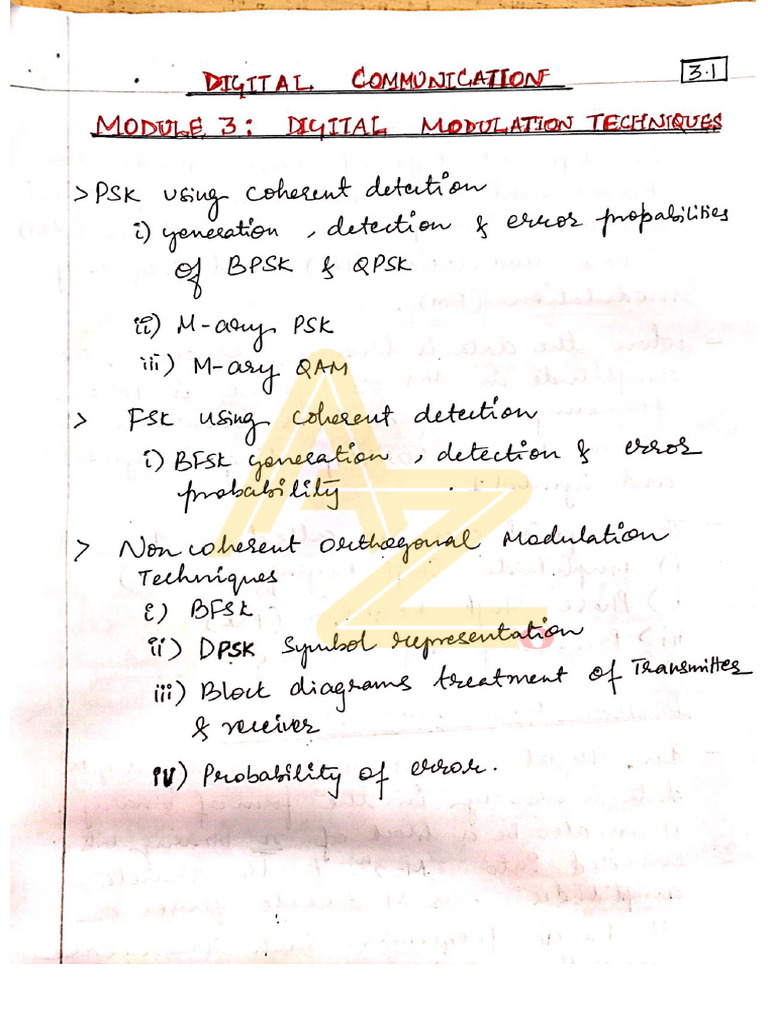 DIGITAL COMMUNICATION
3.1
MODULE 3: DIGITAL MODULATION TECHNIQUES
> PSK using coherent detection
i) generation, detection & error propabilities
of BPSK & QPSK
ii) M-ary PSK
iii) M-ary QAM
> FSK using coherent detection
i) BFSK generation, detection & error
probability
> Non coherent orthogonal Modulation
Techniques
i) BFSK
ii) DPSK Symbol representation
iii) Block diagrams treatment of Transmitter
& receiver
iv) Probability of error.
AZ